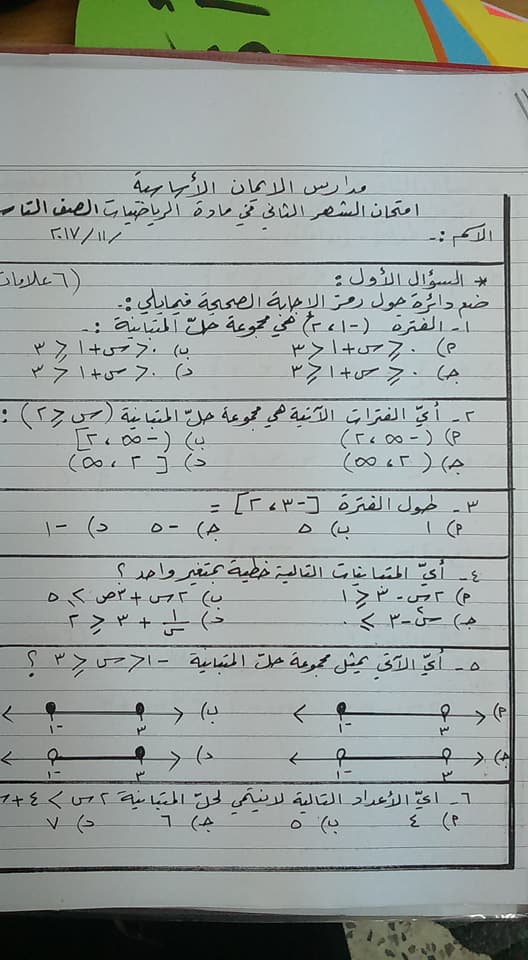 مدارس الايمان الأساسية
امتحان الشهر الثاني في مادة الرياضيات الصف التاس
الاسم :- / ١١/ ٢٠١٧
* السؤال الأول : (٦ علامات
ضع دائرة حول رمز الإجابة الصحيحة فيمايلي :-
١- الفترة (-١، ٢) هي مجموعة حلّ المتباينة :-
م) ٠ ⩽ س+١ < ٣ ب) ٠ < س+١ ⩽ ٣
جـ) ٠ ⩽ س+١ ⩽ ٣ د) ٠ < س+١ < ٣
٢- أيّ الفترات الآتية هي مجموعة حلّ المتباينة (س ⩽ ٢) :
م) (-∞، ٢) ب) (-∞، ٢]
جـ) (٢، ∞) د) [٢، ∞)
٣- طول الفترة [-٣، ٢] =
م) ١ ب) ٥ جـ) -٥ د) -١
٤- أيّ المتباينات التالية خطية بمتغير واحد ؟
م) ٢س - ٣ ⩽ ١ ب) ٢س + ٣ص ⩾ ٥
جـ) س٢ - ٣ ⩾ ٠ د) ١/س + ٣ ⩽ ٢
٥- أيّ الآتي يمثل مجموعة حلّ المتباينة -١ < س ⩽ ٣ ؟
م) ب)
-١ ٣ -١ ٣
جـ) د)
-١ ٣ -١ ٣
٦- ايّ الأعداد التالية لاينتمي لحلّ المتباينة ٢س > ٤+س
م) ٤ ب) ٥ جـ) ٦ د) ٧